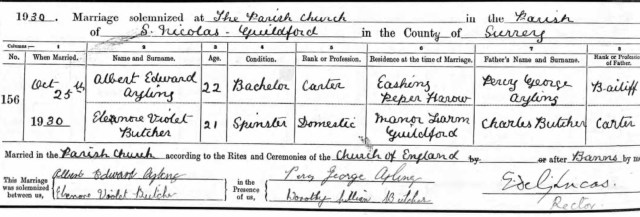 1930. Marriage solemnized at The Parish Church in the Parish
of S. Nicolas - Guildford in the County of Surrey
Columns:— 1 2 3 4 5 6 7 8
No. When Married. Name and Surname. Age. Condition. Rank or Profession. Residence at the time of Marriage. Father's Name and Surname. Rank or Profession of Father.
156
Oct 25th Albert Edward Ayling 22 Bachelor Carter Eashing Peper Harow Percy George Ayling Bailiff
1930 Eleanore Violet Butcher 21 Spinster Domestic Manor Farm Guildford Charles Butcher Carter
Married in the Parish Church according to the Rites and Ceremonies of the Church of England by or after Banns by me
This Marriage was solemnized between us, Albert Edward Ayling in the Presence of us, Percy George Ayling
Eleanore Violet Butcher Dorothy Lillian Butcher Lucas.
Rector